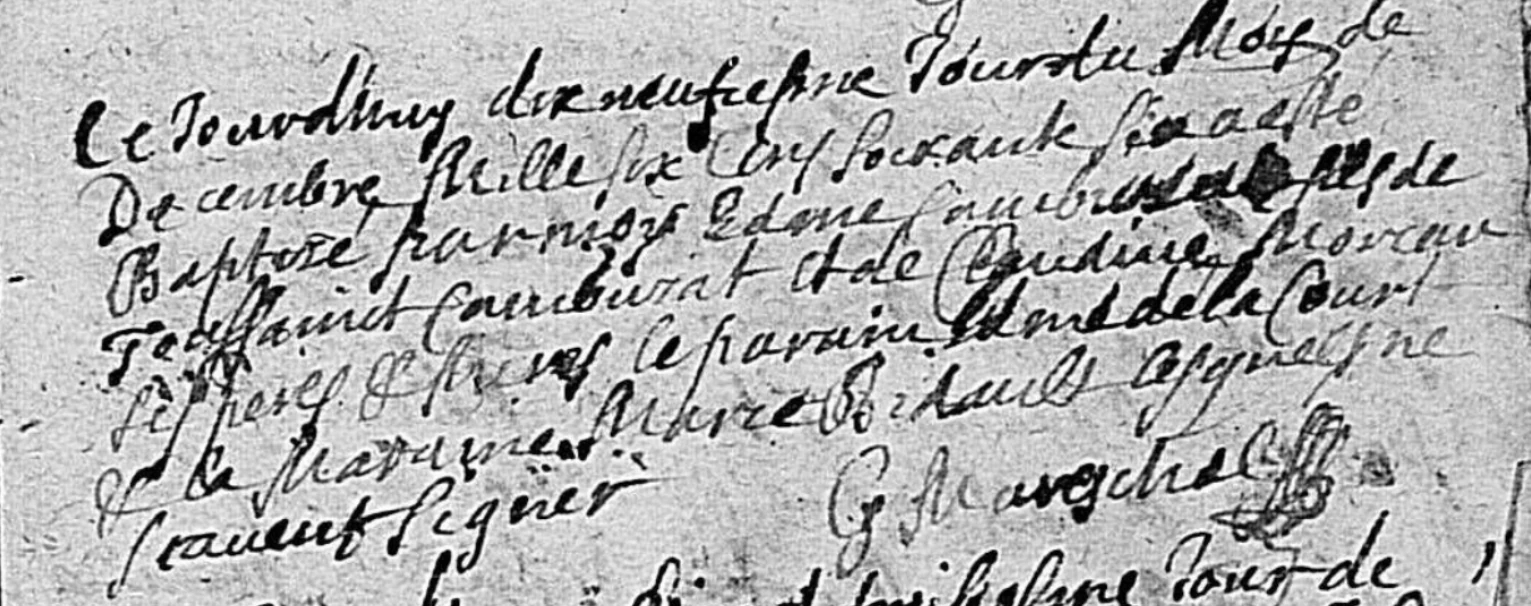 Ce Jourdhuy dixneufiesme Jour du Moys de
Decembre Mille six Cens Soixante six a esté
Baptisé par moy Edme fils de
Toussainct Camburat et de Claudine Moreau
ses peres & meres le parain Edme de la Court
& la Maraine Marie Bidault lesquels ne
scavent signer G Mareschal
Jour de